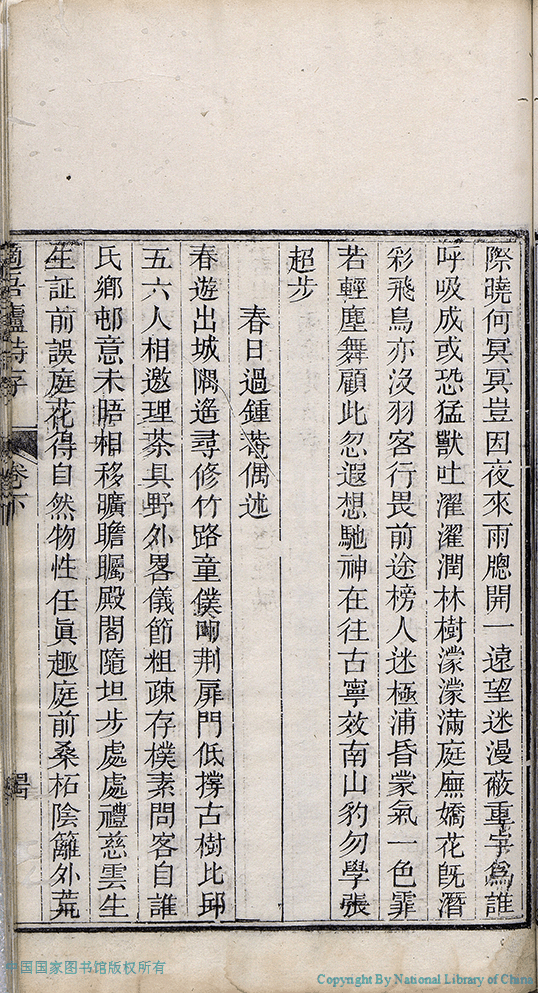 際曉何冥冥豈因夜來雨牕開一遠望迷漫蔽重宇為誰
呼吸成或恐猛獸吐濯濯潤林樹濛濛滿庭廡嬌花旣潛
彩飛鳥亦沒羽客行畏前途榜人迷極浦昏蒙氣一色霏
若輕塵舞顧此忽遐想馳神在往古寧效南山豹勿學張
超步
春日過鍾菴偶述
春遊出城隅遙尋修竹路童僕叩荆扉門低撐古樹比邱
五六人相邀理茶具野外畧儀節粗疎存樸素問客自誰
氏鄉邨意未晤相移曠瞻矚殿閣隨坦步處處禮慈雲生
生証前誤庭花得自然物性任眞趣庭前桑柘陰籬外荒
適吾廬詩存
卷下
中国国家图书馆版权所有
Copyright By National Library of China